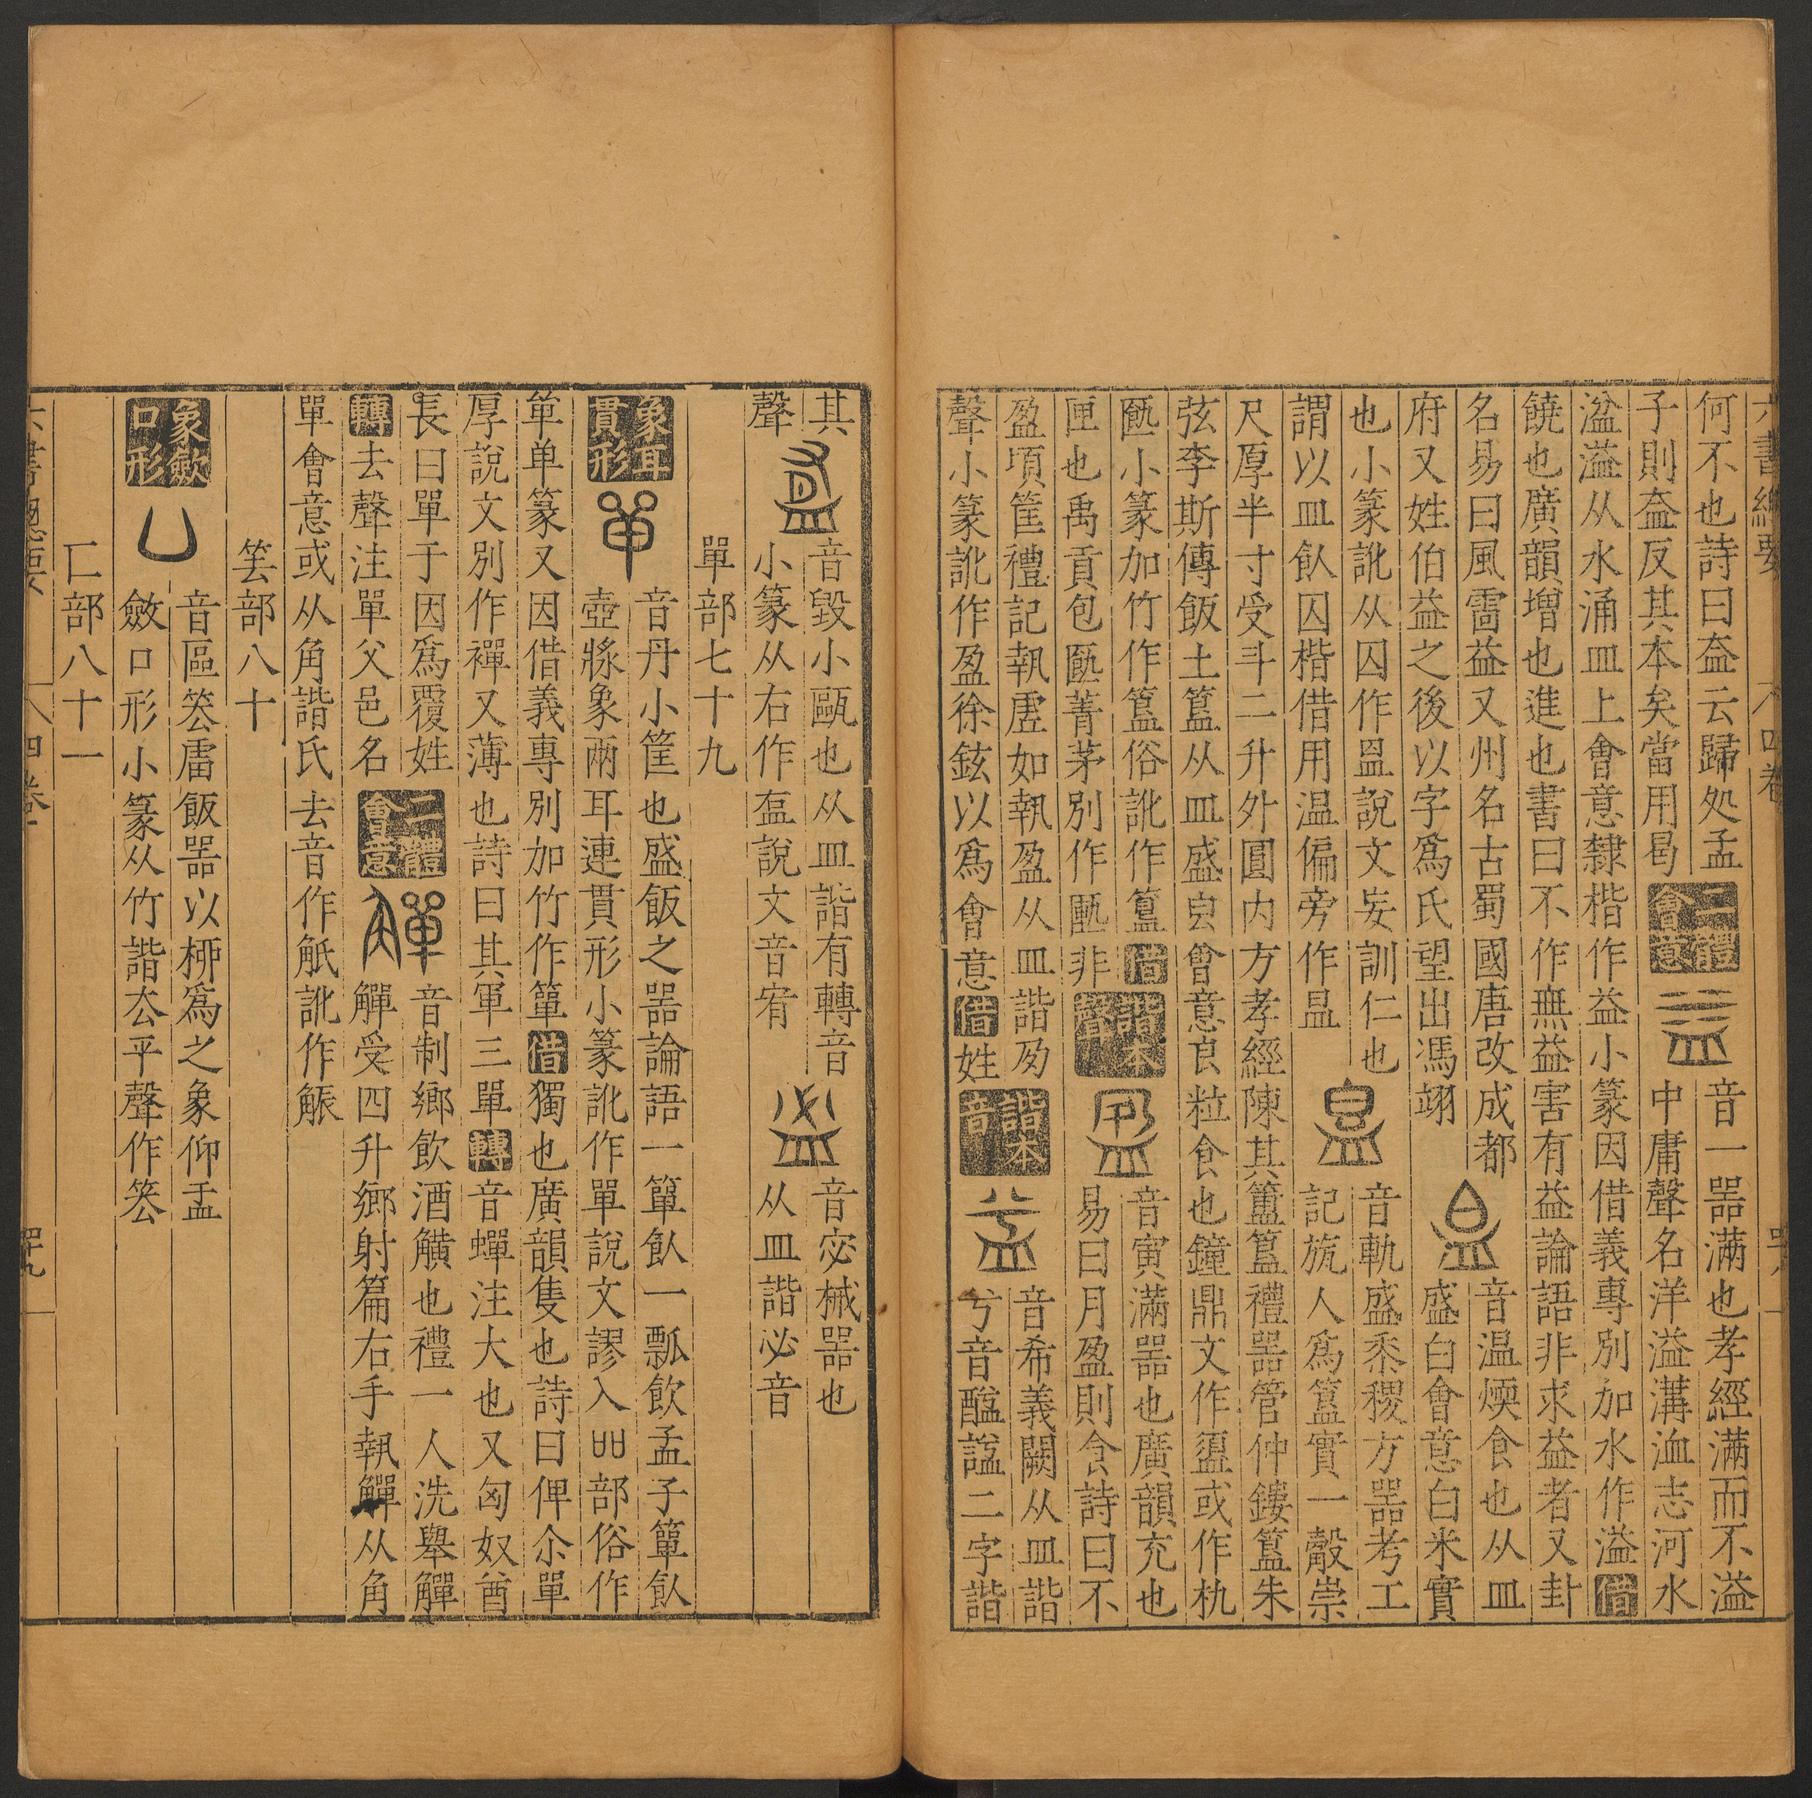 六書總要
四卷
何不也詩曰盇云歸処孟
子則盇反其本矣當用曷
二體會意
音一噐滿也孝經滿而不溢
中庸聲名洋溢溝洫志河水
湓溢从水涌皿上會意隸楷作益小篆因借義專別加水作溢借
饒也廣韻增也進也書曰不作無益害有益論語非求益者又卦
名易曰風雷益又州名古蜀國唐改成都
府又姓伯益之後以字爲氏望出馮翊
音温煗食也从皿
盛白會意白米實
也小篆訛从囚作昷說文妄訓仁也
謂以皿飤囚楷借用温偏旁作昷
音軌盛黍稷方噐考工
記旊人爲簋實一觳崇
尺厚半寸受斗二升外圓内方孝經陳其簠簋禮噐管仲鏤簋朱
弦李斯傳飯土簋从皿盛皀會意皀粒食也鐘鼎文作盨或作朹
匭小篆加竹作簋俗訛作簋借
匣也禹貢包匭菁茅別作匭非
諧本聲
音寅滿噐也廣韻充也
易曰月盈則食詩曰不
盈頃筐禮記執虛如執盈从皿諧夃
聲小篆訛作盈徐鉉以爲會意借姓
諧本音
音希義闕从皿諧
兮音醯諡二字諧
其
聲
音毀小甌也从皿諧有轉音
小篆从右作盇說文音宥
音宓械噐也
从皿諧必音
單部七十九
象耳貫形
音丹小筐也盛飯之噐論語一簞飤一瓢飲孟子簞飤
壺漿象兩耳連貫形小篆訛作單說文謬入吅部俗作
箪单篆又因借義專別加竹作簞借獨也廣韻隻也詩曰俾尒單
厚說文別作襌又薄也詩曰其軍三單轉音蟬注大也又匈奴酋
長曰單于因爲覆姓
轉去聲注單父邑名
二體會意
音制鄉飲酒觵也禮一人洗舉觶
觶受四升鄉射篇右手執觶从角
單會意或从角諧氏去音作觗訛作觮
筶部八十
象斂口形
音區筶盧飯噐以桺爲之象仰盂
斂口形小篆从竹諧厺平聲作筶
匚部八十一
六書總要
四卷
四十九